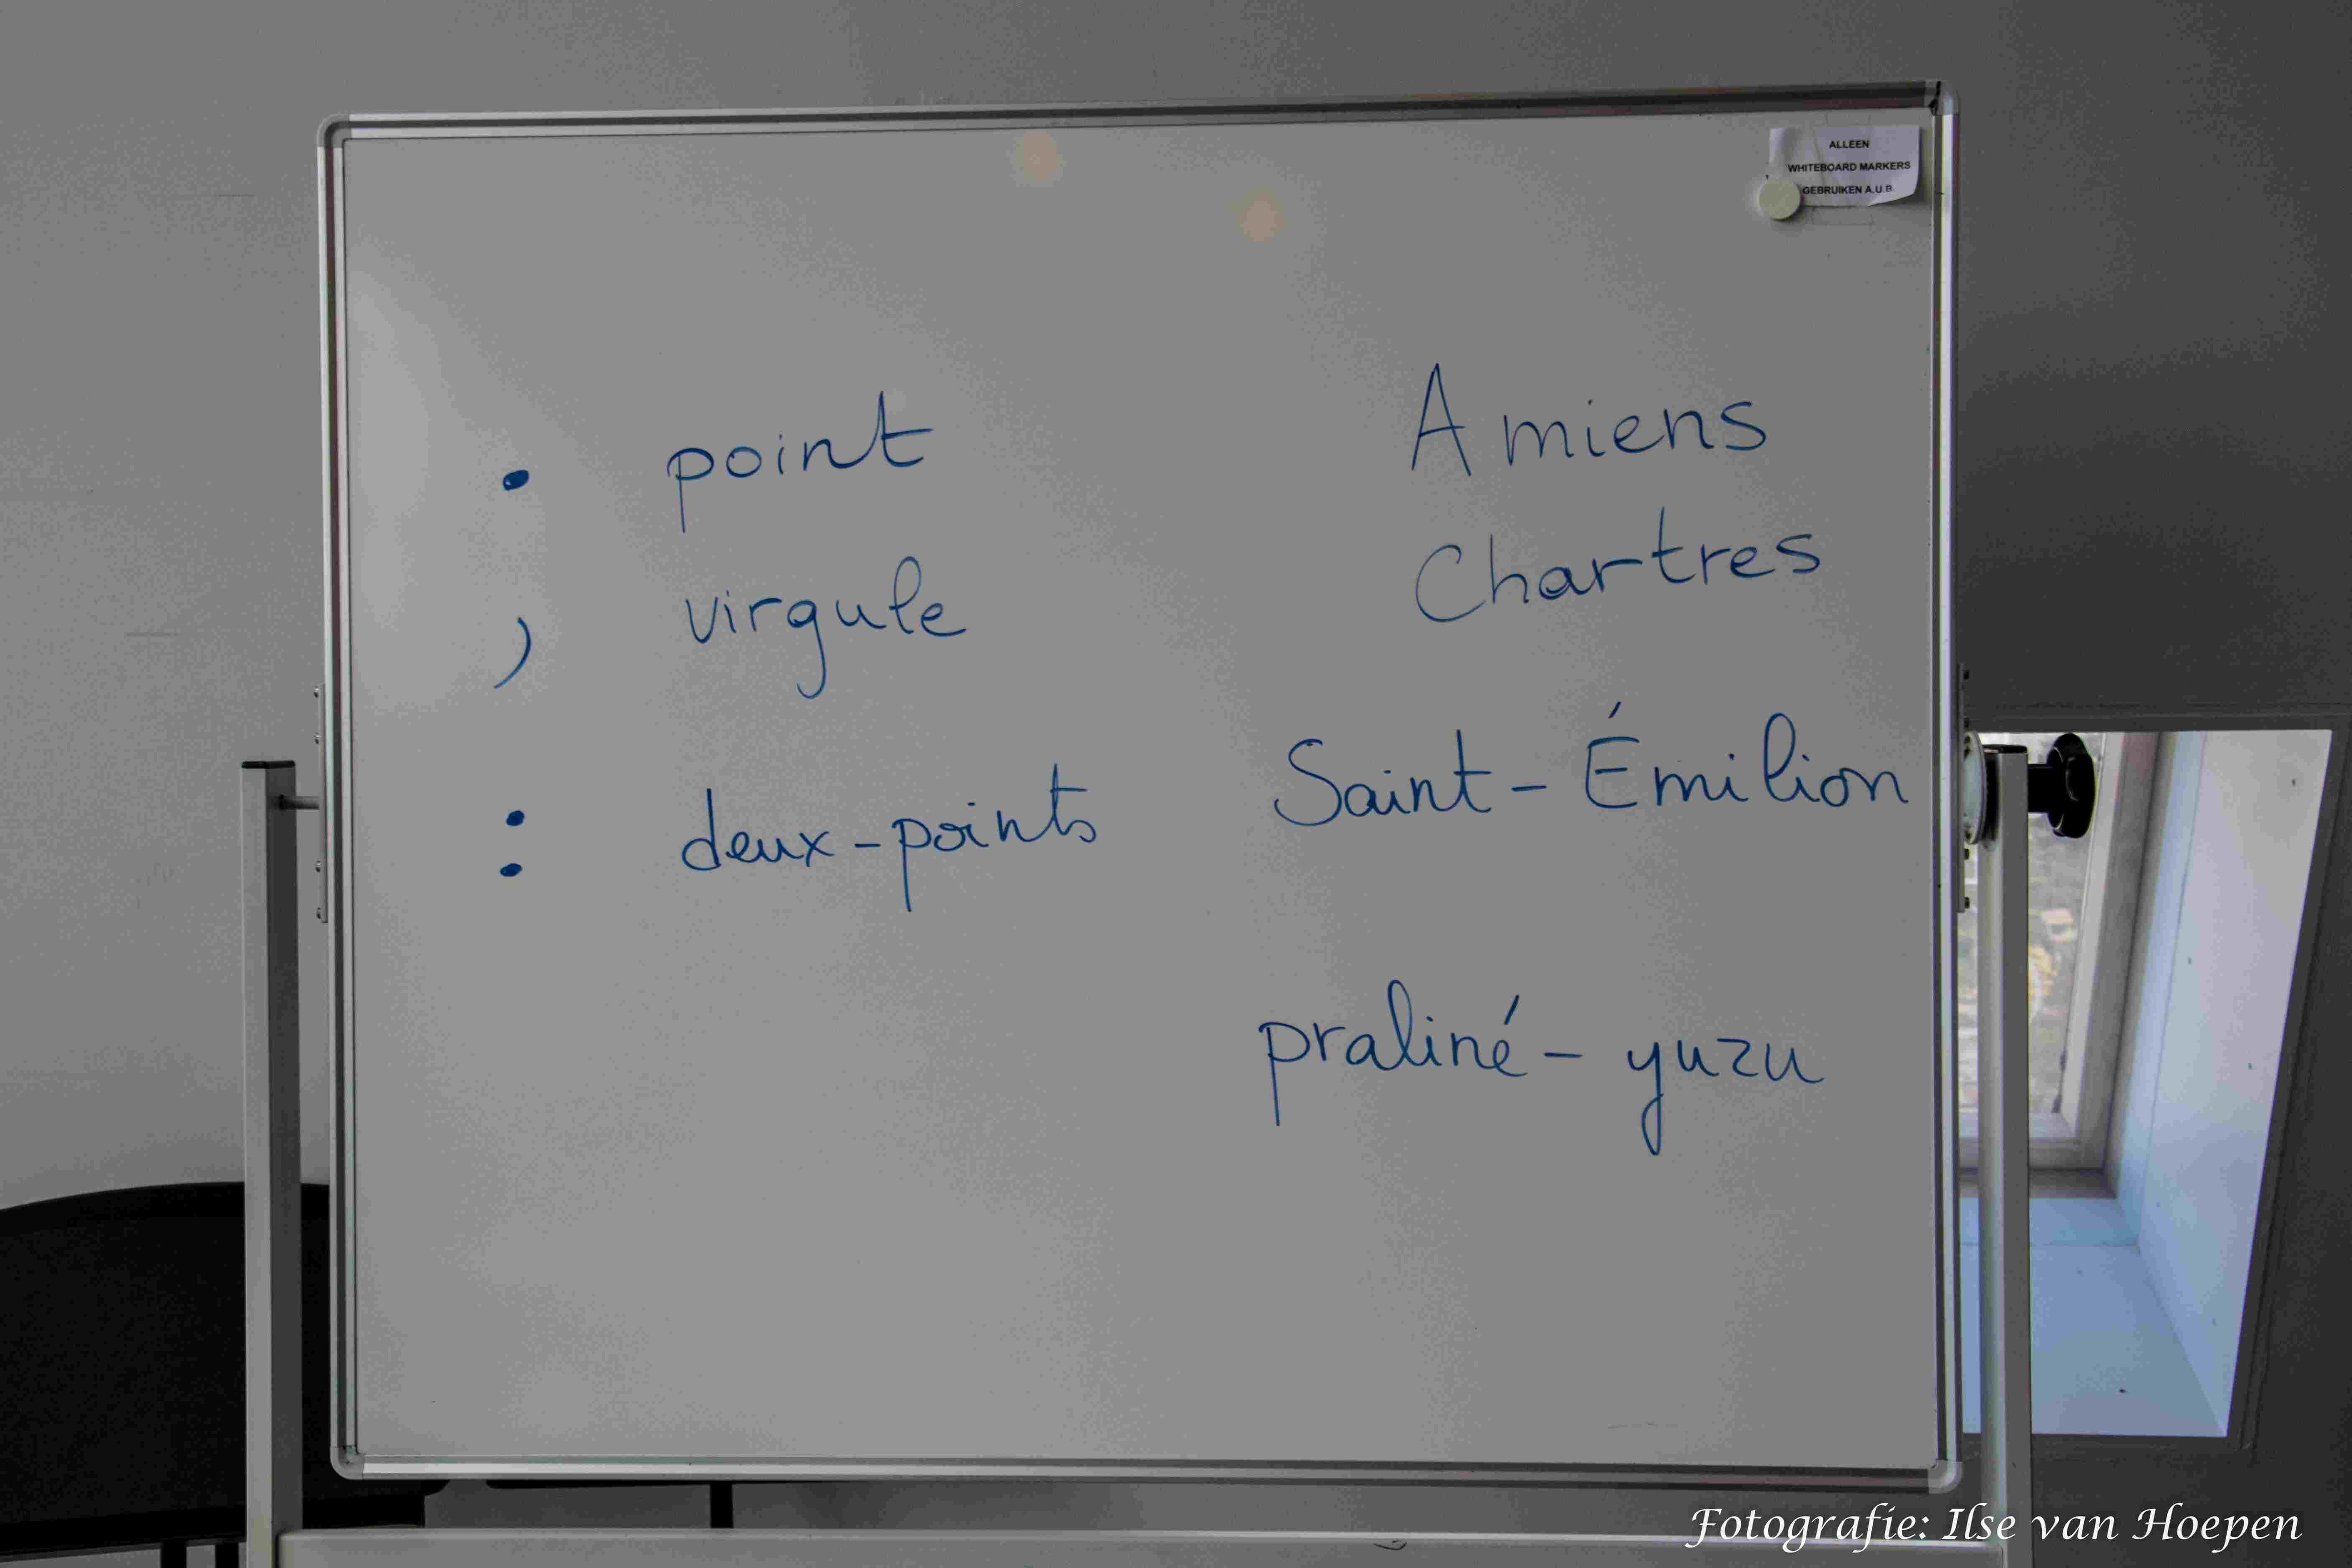 ALLEEN
WHITEBOARD MARKERS
GEBRUIKEN A.U.B.
. point
, virgule
: deux-points
Amiens
Chartres
Saint-Émilion
praliné-yuzu
Fotografie: Ilse van Hoepen